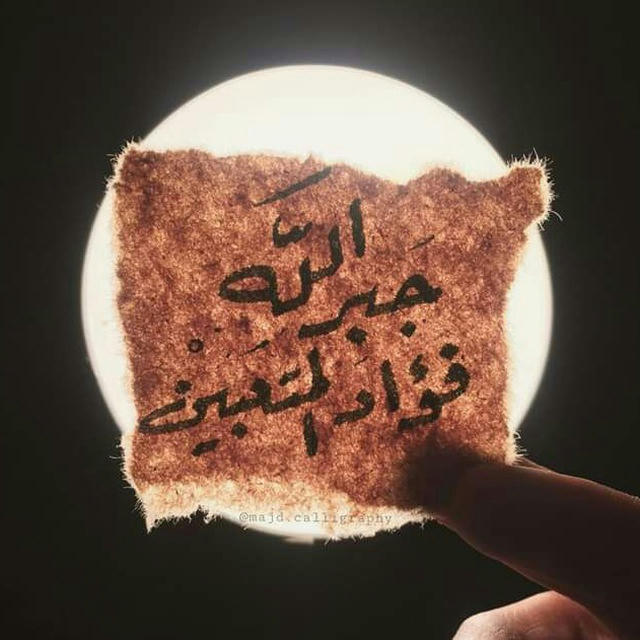 جبر الله
فؤاد المتعبين
@majd.calligraphy